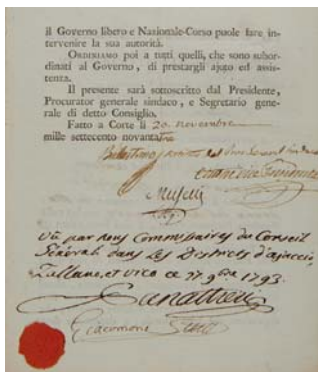 il Governo libero e Nazionale-Corso puole fare in-
tervenire la sua autorità.
ORDINIAMO poi a tutti quelli, che sono subor-
dinati al Governo, di prestargli ajuto ed assis-
tenza.
Il presente sarà sottoscritto dal Presidente,
Procurator generale sindaco, e Segretario gene-
rale di detto Consiglio.
Fatto a Corte li 20. novembre
mille settecento novantatre
Muselli
Vu par nous Commissaires du Conseil
Général dans les Districts d'ajaccio,
Tallano, et vico ce 27 9bre 1793.
Giacomoni